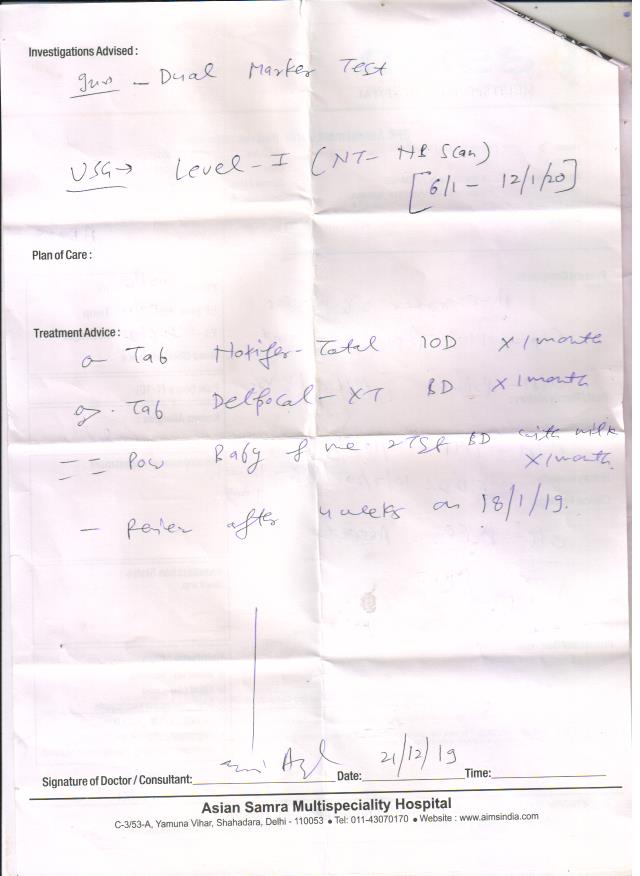 Investigations Advised :
Inv - Dual Marker Test
USG → Level-I (NT- NB Scan)
[6/1 - 12/1/20]
Plan of Care :
Treatment Advice :
Tab Hotifer-Total 1OD X 1 month
Tab Delfocal-XT BD X 1 month
Pow Baby & me 2TSF BD with milk
X 1 month
- Review after 4 weeks on 18/1/19.
Signature of Doctor / Consultant: Date: 21/12/19 Time:
Asian Samra Multispeciality Hospital
C-3/53-A, Yamuna Vihar, Shahadara, Delhi - 110053 ● Tel: 011-43070170 ● Website : www.aimsindia.com